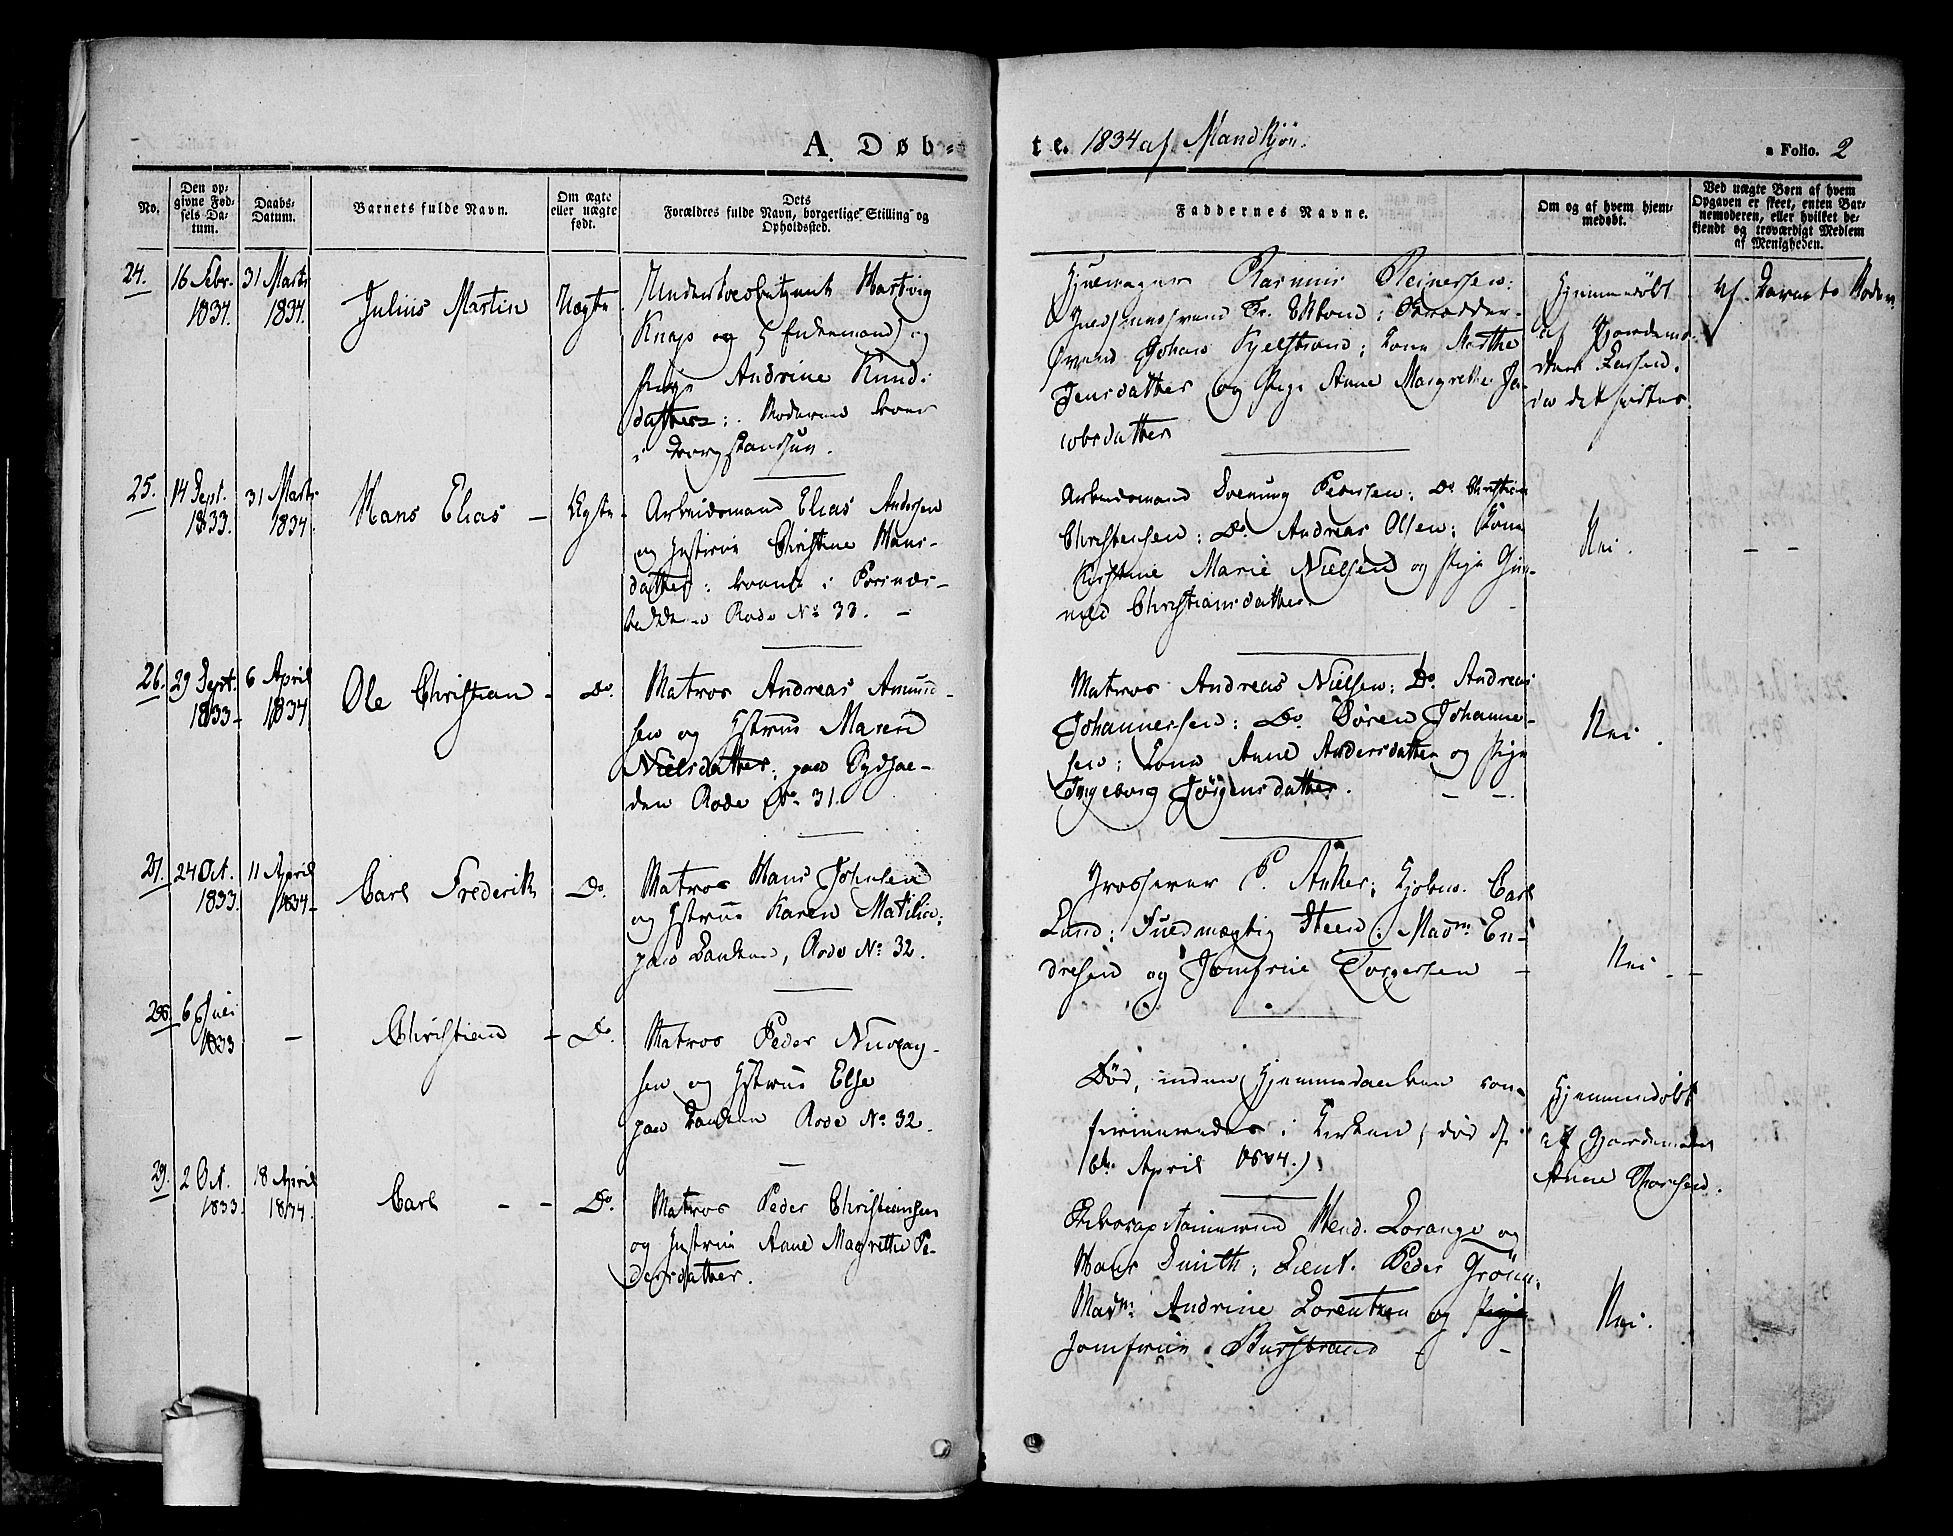 A. Døb-
te. 1834 af Mandkjøn.
a Folio. 2
No.
Den op-
givne Fød-
sels Da-
tum.
Daabs-
Datum.
Barnets fulde Navn.
Om ægte
eller uægte
født.
Dets
Forældres fulde Navn, borgerlige Stilling og
Opholdssted.
Faddernes Navne.
Om og af hvem hjem-
medøbt.
Ved uægte Børn af hvem
Opgaven er skeet, enten Bar-
nemoderen, eller hvilket be-
kjendt og troværdigt Medlem
af Menigheden.
24.
16 Febr.
1834.
31 Marts
1834.
Julius Martin
Uægte
Hartvig
Knap og (Enkemand) og
Pige Andrine Knud-
datter: Moderen boer
i
Rasmus Reinersen:
svend Fr. : Snedker-
svend Johan Kjelstrand; Kone Marthe
Jensdatter og Pige Anne Margrethe Ja-
cobsdatter
Hjemmedøbt
af Gjordemo-
deren Larsen.
af Barnets Moder.
25.
14 Sept.
1833.
31 Marts
1834.
Hans Elias -
Ægte
Arbeidsmand Elias Andersen
og Hustrue Christine Hans-
datter: boende i
Rode No 33. -
Arbeidsmand Svenning Pedersen: Do Christian
Christensen: Do Andreas Olsen: Kone
Kirstine Marie Nielsen og Pige Gun-
nild Christiansdatter.
Nei.
- -
26.
29 Sept.
1833-
6 April
1834
Ole Christian -
Do.
Matros Andreas Amund-
sen og Hstrue Maren
Nielsdatter: paa Sydsae-
den Rode No 31.
Matros Andreas Nielsen: Do Andreas
Johannessen: Do Søren Johanne-
sen; Kone Anne Andersdatter og Pige
Ingeborg Jørgensdatter. - -
Nei.
27.
24 Oct.
1833.
11 April
1834-
Carl Frederik
Do.
Matros Hans Johnsen
og Hstrue Karen Mathilia:
paa Sanden, Rode No 32.
Grosserer P. Anker; Kjøbm. Carl
Lund; Fuldmægtig Steen: Madm En-
dresen og Jomfrue Torgersen -
Nei - -
28.
6 Juni
1833
-
Christian -
Do.
Matros Peder
sen og Hstrue Else
paa Sanden Rode No 32.
Død, inden Hjemmedaaben con-
fermeredes i Kirken (død d.
16de April 1834.)
Hjemmedøbt
af Gjordemoder
Anne Thoresen.
29.
2 Oct.
1833.
18 April
1834.
Carl - -
Do.
Matros Peder Christiansen
og Hustrue Anne Magrethe Pe-
dersdatter.
Skibscapitainerne Hend. Lorange og
Hans Smith; Lieut. Peder Grønn:
Madm Andrine Lorentzen og Pige
Jomfrue - -
Nei.